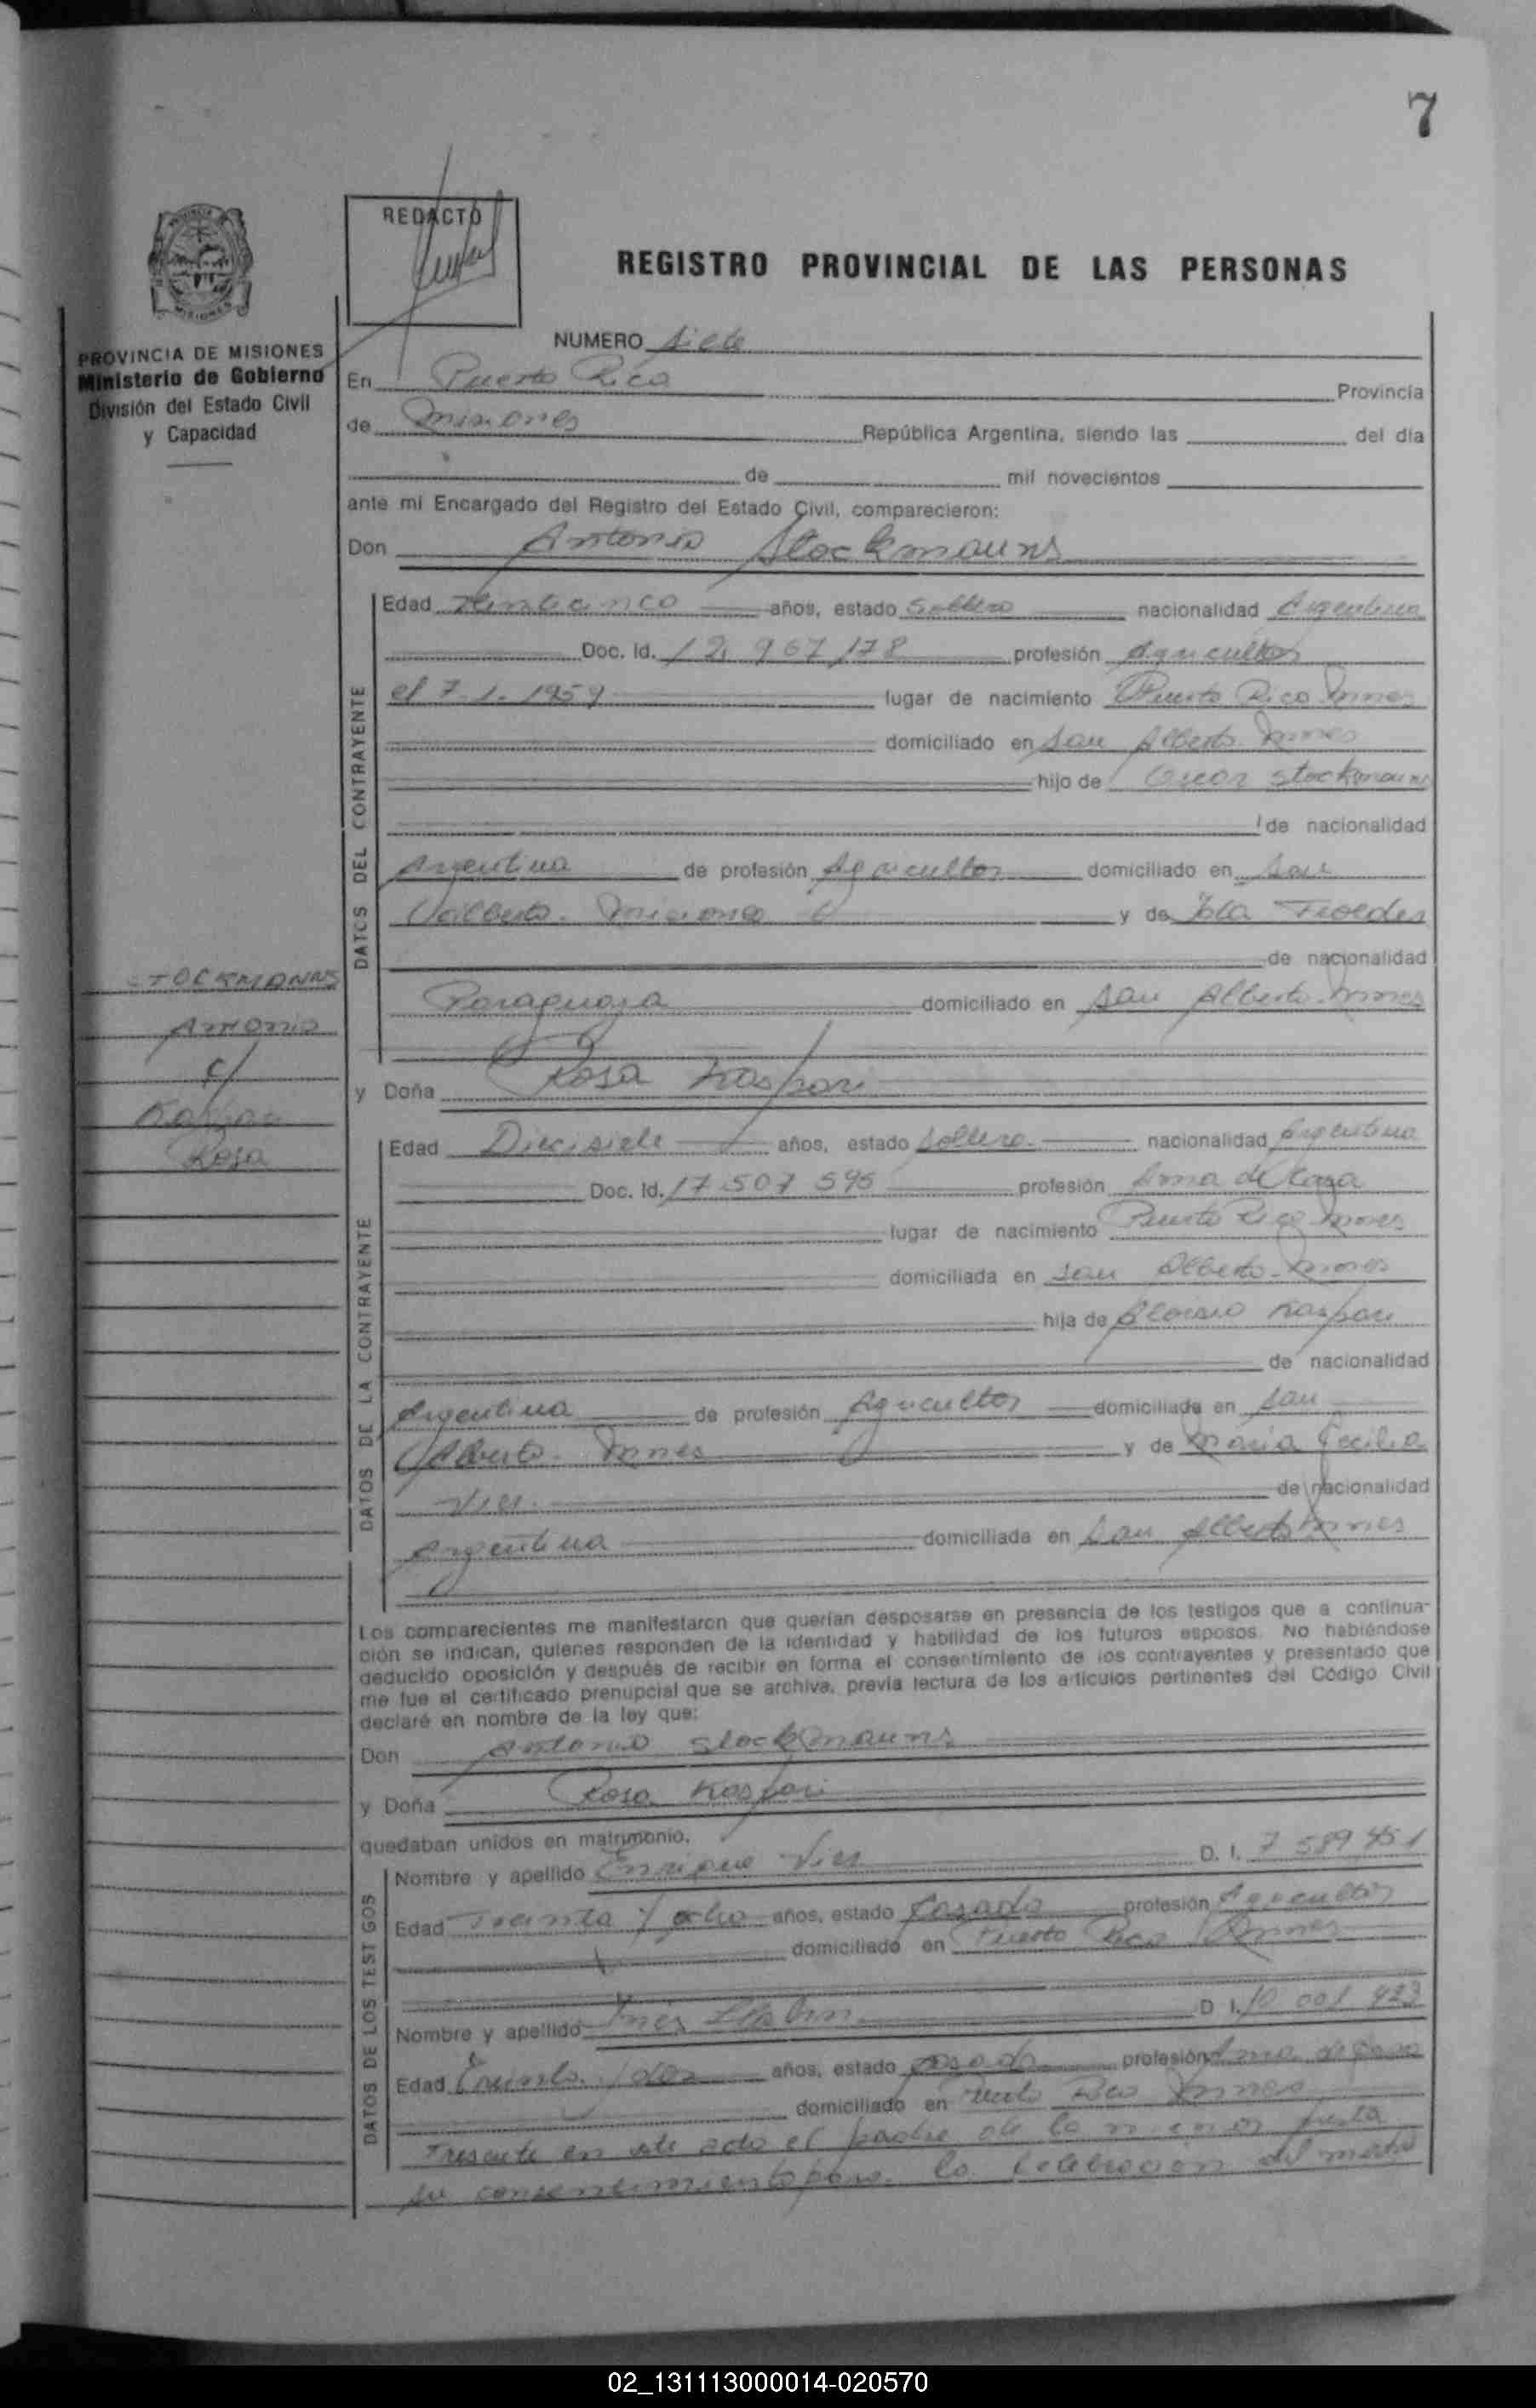 7
REDACTO
REGISTRO PROVINCIAL DE LAS PERSONAS
PROVINCIA DE MISIONES
Ministerio de Gobierno
División del Estado Civil
y Capacidad
NUMERO siete
En Puerto Rico Provincia
de Misiones República Argentina, siendo las del día
de mil novecientos
ante mi Encargado del Registro del Estado Civil, comparecieron:
Don Antonio Stockmanns
DATOS DEL CONTRAYENTE
Edad años, estado Soltero nacionalidad Argentina
Doc. Id. 12.967.178 profesión Agricultor
el 7.1.1959 lugar de nacimiento Puerto Rico Mnes
domiciliado en San Alberto Mnes
hijo de Oscar Stockmanns
de nacionalidad
Argentina de profesión Agricultor domiciliado en San
Alberto. Misiones y de
de nacionalidad
Paraguaya domiciliado en San Alberto Mnes
STOCKMANNS
Antonio
c/
Kaspari
Rosa
y Doña Rosa Kaspari
DATOS DE LA CONTRAYENTE
Edad Diecisiete años, estado soltera nacionalidad Argentina
Doc. Id. 17.507 595 profesión Ama de Casa
lugar de nacimiento Puerto Rico Mnes
domiciliada en San Alberto-Mnes
hija de Kaspari
de nacionalidad
Argentina de profesión Agricultor domiciliada en San
Alberto. Mnes y de Maria Cecilia
Vier de nacionalidad
Argentina domiciliada en San Alberto Mnes
Los comparecientes me manifestaron que querían desposarse en presencia de los testigos que a continua-
ción se indican, quienes responden de la identidad y habilidad de los futuros esposos. No habiéndose
deducido oposición y después de recibir en forma el consentimiento de los contrayentes y presentado que
me fue el certificado prenupcial que se archiva, previa lectura de los artículos pertinentes del Código Civil
declaré en nombre de la ley que:
Don Antonio Stockmanns
y Doña Rosa Kaspari
quedaban unidos en matrimonio.
DATOS DE LOS TESTIGOS
Nombre y apellido Enrique Vier D. I. 7 589 451
Edad Treinta y ocho años, estado Casado profesión Agricultor
domiciliado en Puerto Rico Mnes
Nombre y apellido Ines D I. 10 001 423
Edad Treinta y dos años, estado casada profesión Ama de Casa
domiciliado en Puerto Rico Mnes
Presente en este acto el padre de la menor presta
su consentimiento para la celebracion del
02_131113000014-020570